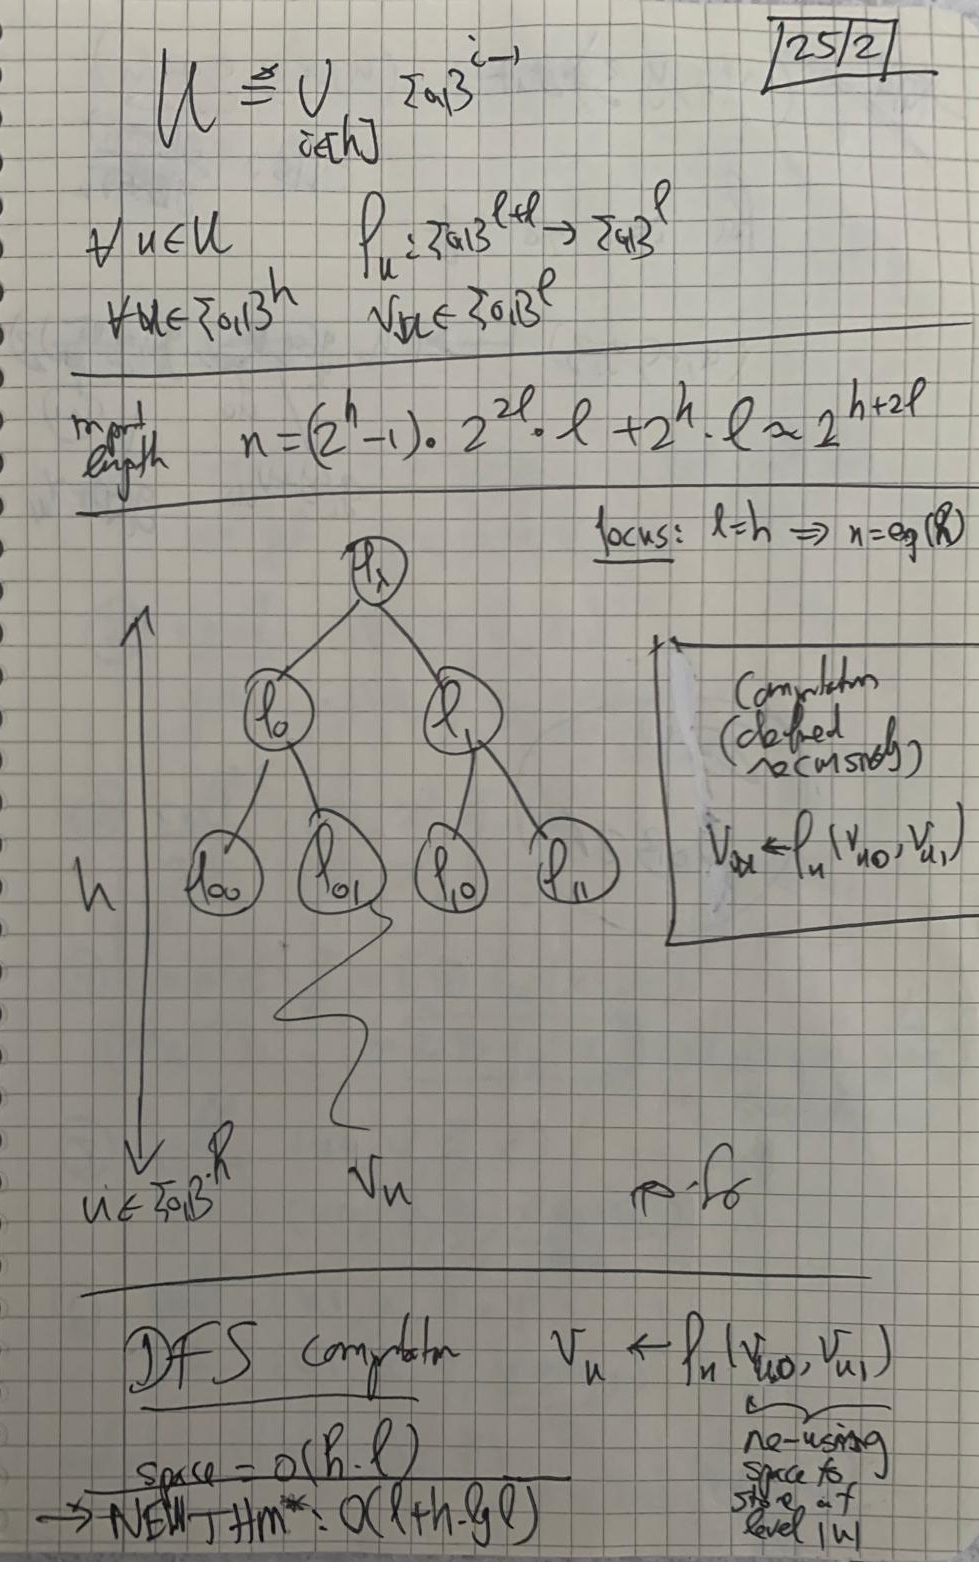 25/2
U ≡ ∪ {0,1}^{i-1}
i∈[h]
∀ u∈U f_u : {0,1}^{l+l} → {0,1}^l
∀u∈{0,1}^h v_u ∈ {0,1}^l
input length n = (2^h - 1) · 2^{2l} · l + 2^h · l ≈ 2^{h+2l}
focus: l=h ⇒ n=exp(h)
f_λ
f_0 f_1
Computation
(defined
recursively)
v_u ← f_u(v_{u0}, v_{u1})
h
f_00 f_01 f_10 f_11
u∈{0,1}^h v_u
DFS computation v_u ← f_u(v_{u0}, v_{u1})
re-using
space to
store at
level |u|
space = O(h·l)
→ NEW THM*: O(l+h·lg l)